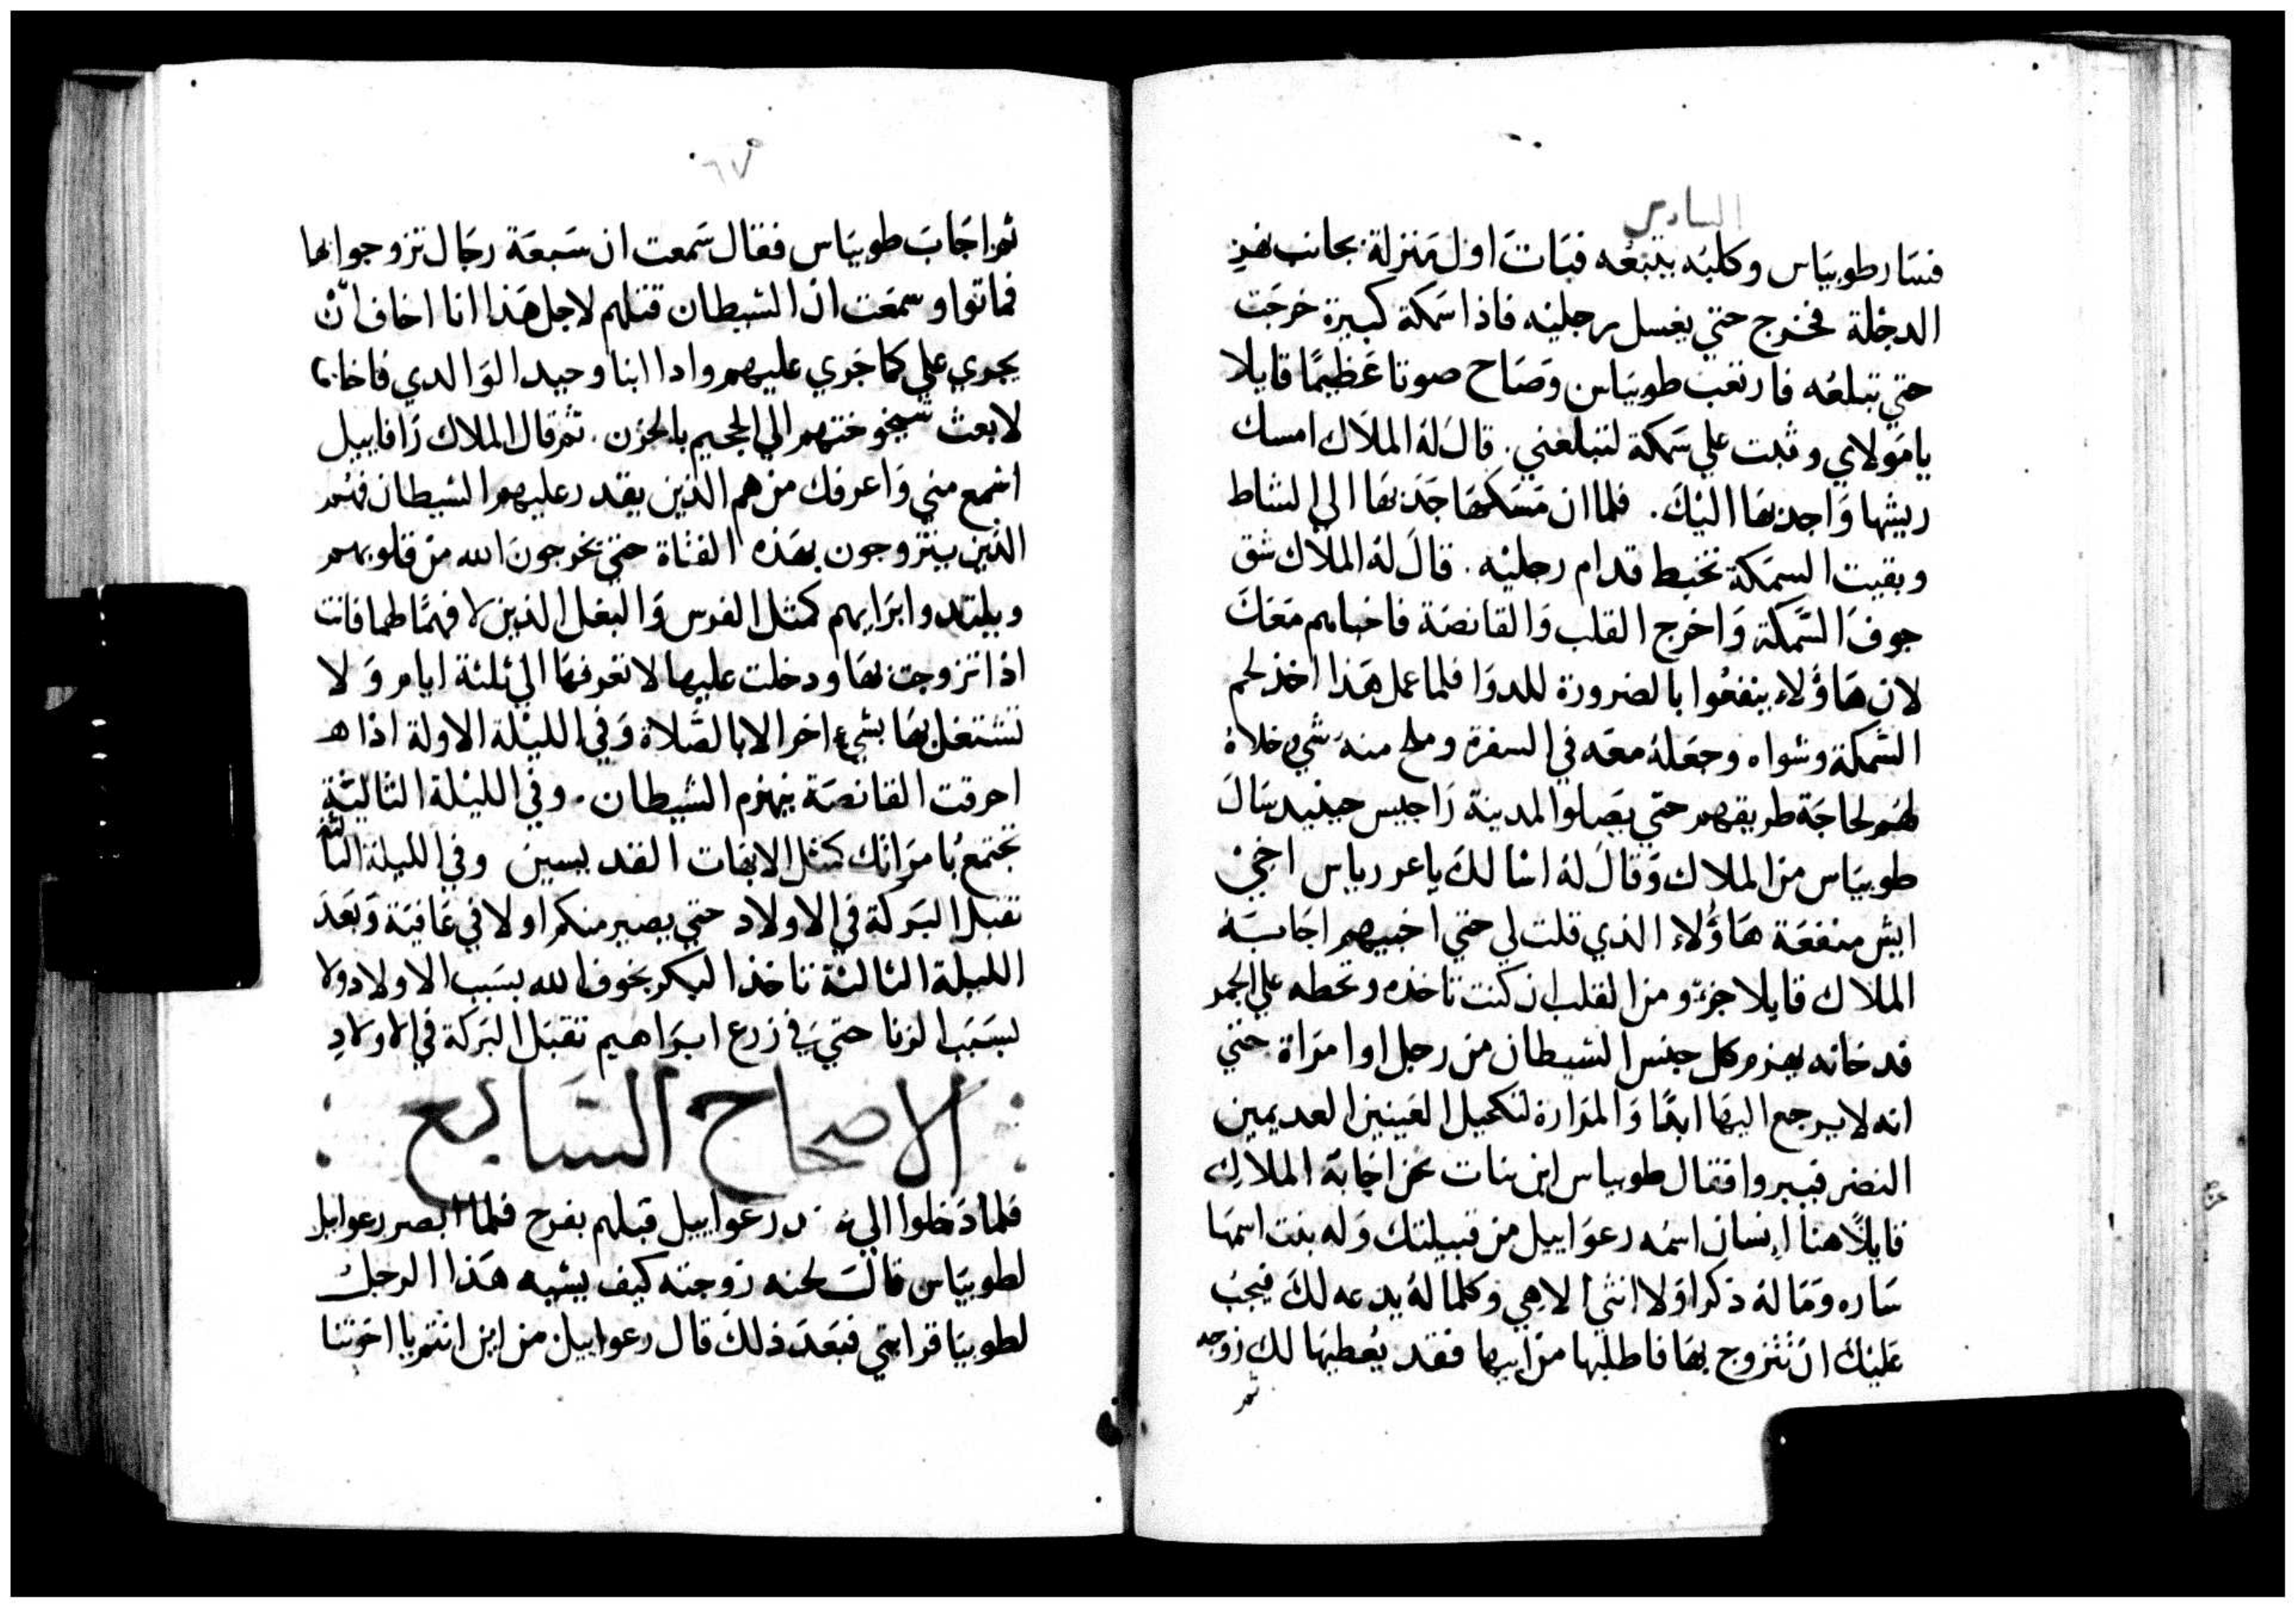 السادس
فسَار طوبيَاس وكلبَه يتبعُه فبَاتَ اول مَنزلة بجانب نهر
الدجلة فخرج حتي يغسل رجليْه فاذا سَمكة كبيرة خرجَت
حتي تبلعُه فارتعَبَ طوبيَاس وَصَاح صوتا عَظيمًا قايلا
يا مَولاي وثبت علي سَمكة لتبلعني. قالَ لهُ الملَاك امسك
ريشها وَاجدبهَا اليْكَ. فلما ان مَسَكهَا جَدَبهَا الي الشاط
وبقيت السمَكة تخبط قدام رجليْه. قالَ لهُ الملَاك شق
جوفَ السَّمكة وَاخرج القلب وَالقانصَة فاخباهم مَعَكَ
لان هَاوُلاء ينفعُوا بالضرورة للدوَا فلما عمل هَذا اخذ لحم
السَّمكة وشواه وجعَلهُ معَه في السفرة وملح منهَ شي خلاهُ
لهَم لحاجَة طريقهم حتي يصَلوا لمدينة رَاجيس حينيد سَالَ
طوبيَاس من الملاك وَقالَ لهُ اسَالكَ يا عزرياس اخي
ايش منفعَة هَاوُلاء الذي قلت لي حتي اخبيهم اجَابَهُ
الملَاك قايلا جزءو من القلب ان كنت تاخذه وتحطه علي الجمر
فدخانه يهزم كل جنس الشيطان من رجل او امرَاة حتي
انه لا يرجع اليهَا ابدًا وَالمرَارة لتكحيل العَينين العديمين
النضر فيبروا فقال طوبياس اين نبات نحن اجَابهُ الملاك
قايلًا هنا اِنسان اسمَه رعوَاييل من قبيلتك وَله بنت اسمهَا
سَاره وَمَا لهُ ذكر اوَلا انثي الا هِي وَكلما لهُ يدعه لكَ فيجبُ
عَليْكَ ان تتزوج بهَا فاطلبها من ابيها فقد يُعطيهَا لك زوجه
ثمر
٦٧
ثم اجَابَ طوبيَاس فقال سَمعت ان سَبعَة رجَال تزوجوا بها
فماتوا وسمعَت ان الشيطان قتلهم لاجل هَذا انا اخاف انْ
يجري علي كما جَري عليهم وادا انا وحيد لوَالدي فاخاف
لابعث شيخوختهم الي الجحيم بالحزن. ثم قال الملاك رَافاييل
اسْمع مني وَاعرفك من هم الذين يقدر عليهم الشيطان فهُم
الذين يتزوجون بهَذه الفتاة حتي يخرجونَ الله من قلوبهم
ويلتدوا بزَايهم كمثل الفرس وَالبغل الذين لا فهمًا لهما فانت
اذا تزوجت بهَا ودخلت عليها لا تعرفهَا الي ثلثة ايام وَلا
تشتغل بهَا بشيءٍ اخر الا بالصَّلاة وَفي الليْلة الاولة اذا هـ
احرقت القانصَة ينهزم الشيطان. وفي الليْلة الثاليْة
تجتمعُ بامرَاتك كمثل الابهات القديسين وفي الليلة الثالثة
تقبل البَركة في الاولاد حتي يصير منكم اولا في عَافيَة وَبَعَد
الليلة الثالثة تاخذ البكر بخوف الله بسَبب الاولاد ولا
بسَبَب الزنا حتيَ في زرع ابرَاهيم تقبَل البَركة في الاولادِ
الاصحاح السَابع
فلما دَخلوا الي رعواييل قبلهم بفرح فلما ابصر رعواييل
لطوبيَاس قالتَ لحنه زوجته كيف يشبه هَذا الرجل
لطوبيَا قرابتي فبَعَدَ ذلكَ قال رعواييل من اين انتم يا اخوَتنا